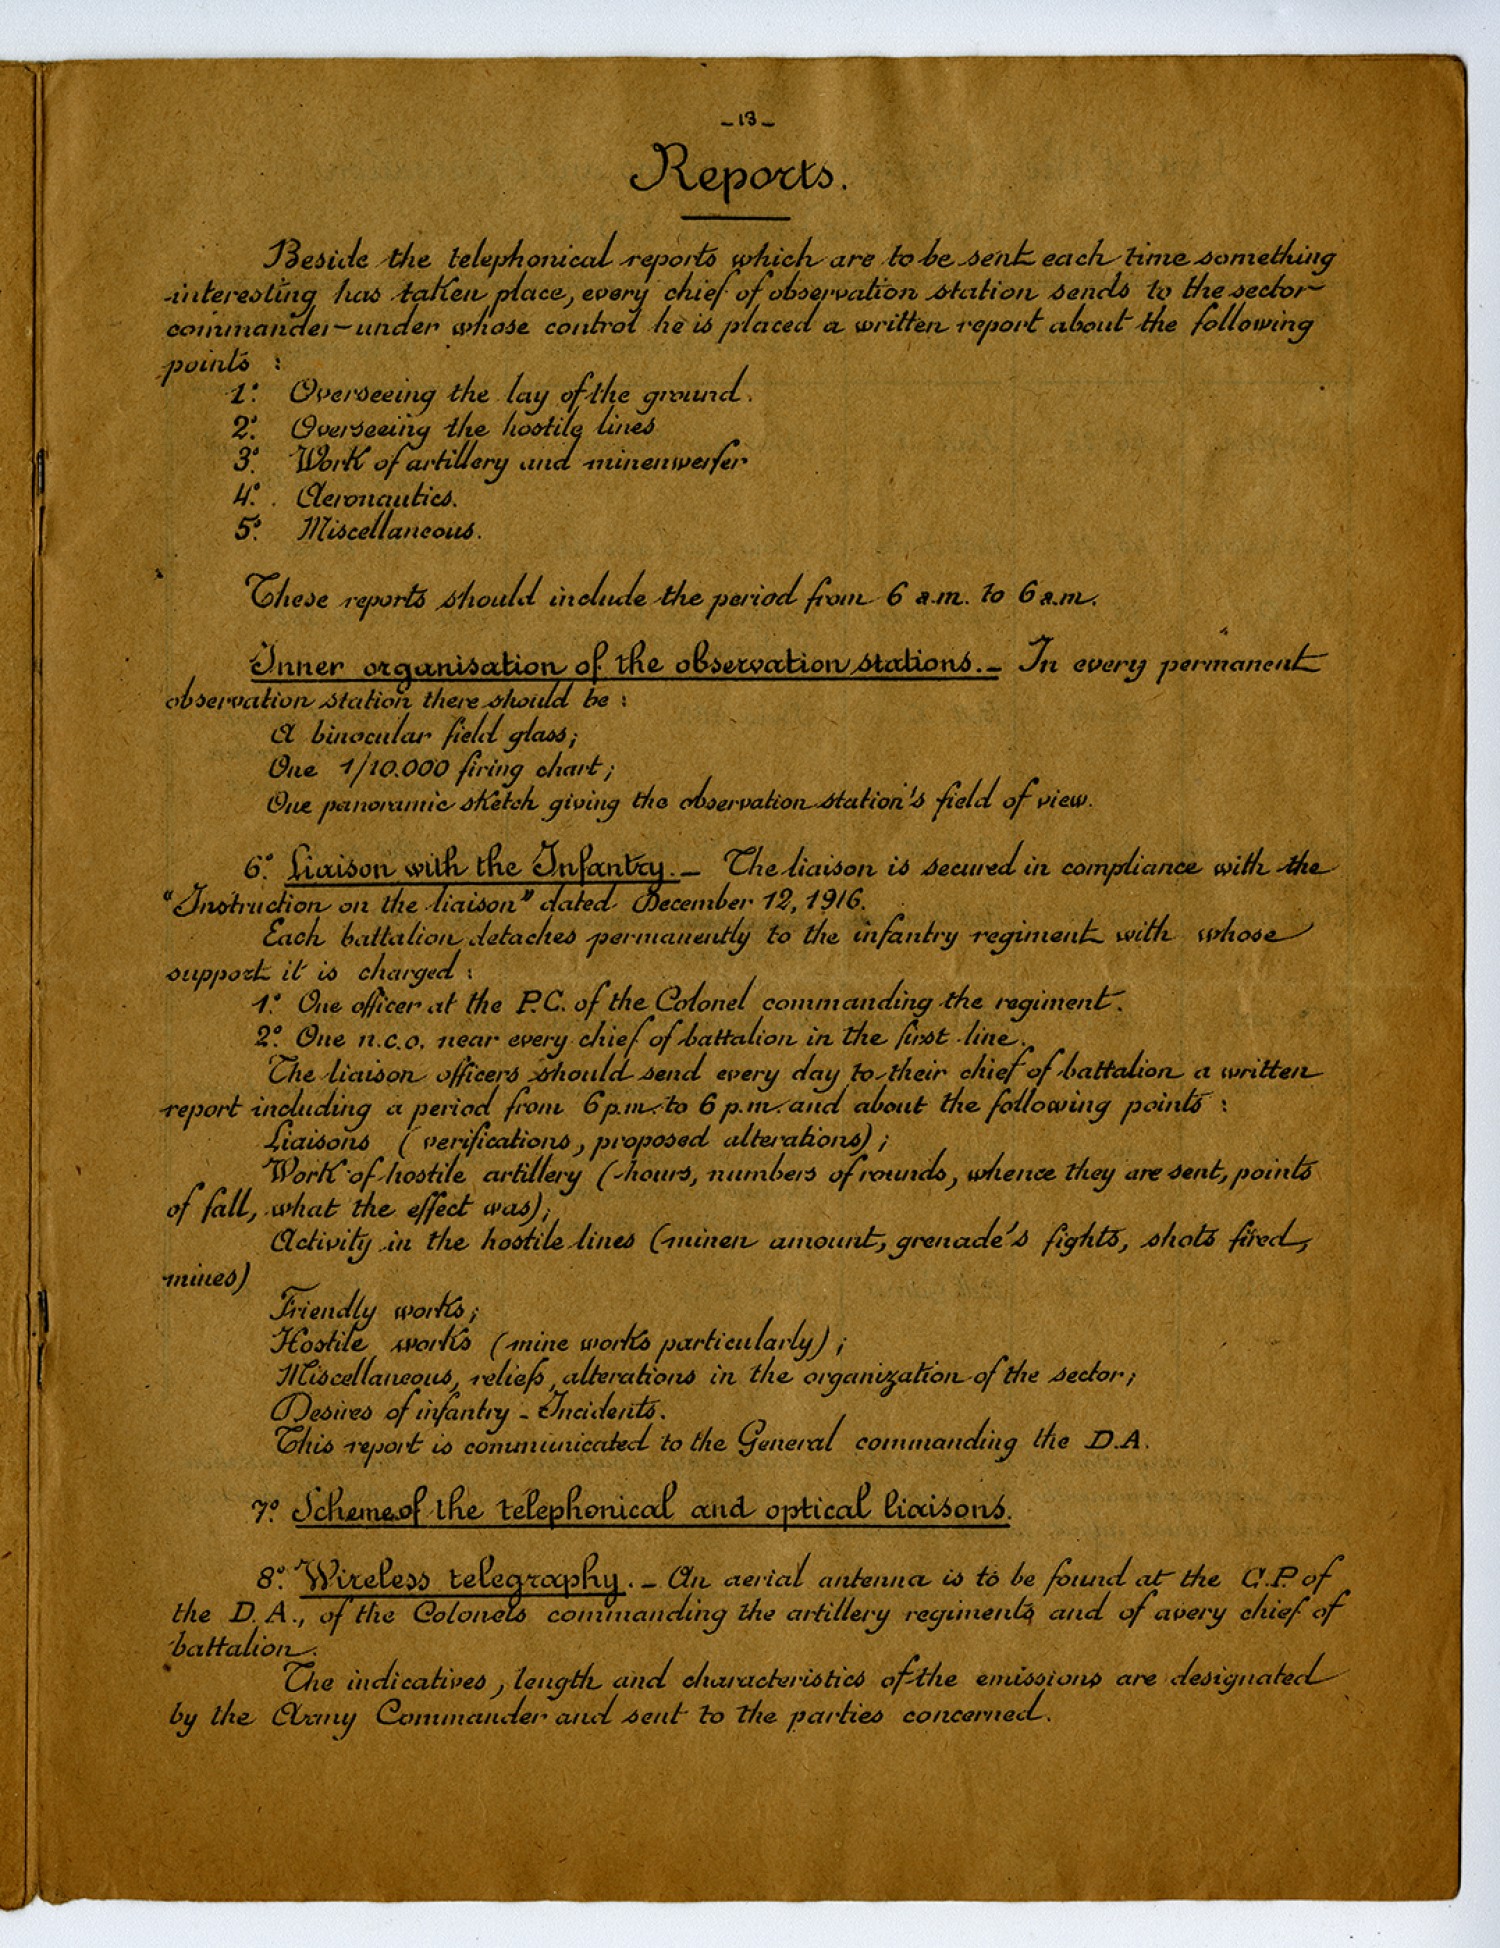 _13_
Reports.
Beside the telephonical reports which are to be sent each time something
interesting has taken place, every chief of observation station sends to the sector
commander under whose control he is placed a written report about the following
points :
1º. Overseeing the lay of the ground.
2º. Overseeing the hostile lines
3º. Work of artillery and minenwerfer
4º. Aeronautics.
5º. Miscellaneous.
These reports should include the period from 6 a.m. to 6 a.m.
Inner organisation of the observation stations._ In every permanent
observation station there should be :
A binocular field glass;
One 1/10.000 firing chart;
One panoramic sketch giving the observation station's field of view.
6º. Liaison with the Infantry._ The liaison is secured in compliance with the
"Instruction on the liaison" dated December 12, 1916.
Each battalion detaches permanently to the infantry regiment with whose
support it is charged :
1º. One officer at the P.C. of the Colonel commanding the regiment.
2º. One n.c.o. near every chief of battalion in the first line.
The liaison officers should send every day to their chief of battalion a written
report including a period from 6 p.m. to 6 p.m. and about the following points :
Liaisons (verifications, proposed alterations);
Work of hostile artillery (hours, numbers of rounds, whence they are sent, points
of fall, what the effect was);
Activity in the hostile lines (minen amount, grenade's fights, shots fired,
mines)
Friendly works;
Hostile works (mine works particularly);
Miscellaneous, reliefs, alterations in the organization of the sector;
Desires of infantry - Incidents.
This report is communicated to the General commanding the D.A.
7º. Scheme of the telephonical and optical liaisons.
8º. Wireless telegraphy._ An aerial antenna is to be found at the C.P. of
the D.A., of the Colonels commanding the artillery regiments and of avery chief of
battalion.
The indicatives, length and characteristics of the emissions are designated
by the Army Commander and sent to the parties concerned.